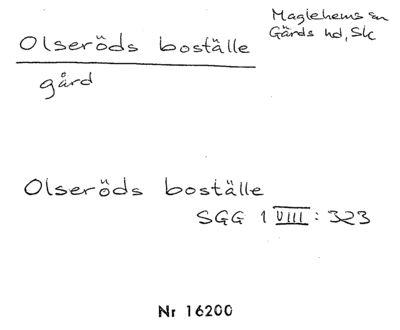 Olseröds boställe
Maglehems sn
Gärds hd, Sk
gård
Olseröds boställe
SGG 1 VIII: 323
Nr 16200